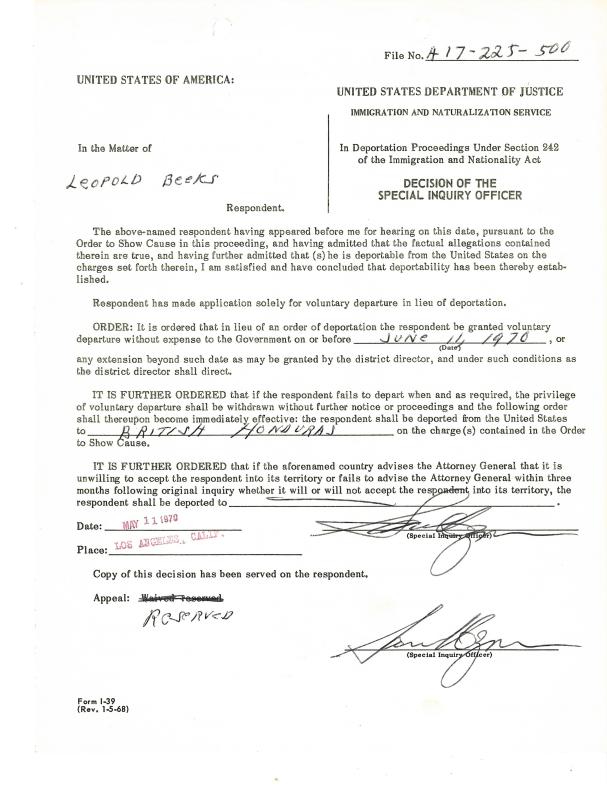 File No. A 17-225-500
UNITED STATES OF AMERICA:
UNITED STATES DEPARTMENT OF JUSTICE
IMMIGRATION AND NATURALIZATION SERVICE
In the Matter of
In Deportation Proceedings Under Section 242
of the Immigration and Nationality Act
LEOPOLD BEEKS
DECISION OF THE
SPECIAL INQUIRY OFFICER
Respondent.
The above-named respondent having appeared before me for hearing on this date, pursuant to the
Order to Show Cause in this proceeding, and having admitted that the factual allegations contained
therein are true, and having further admitted that (s)he is deportable from the United States on the
charges set forth therein, I am satisfied and have concluded that deportability has been thereby estab-
lished.
Respondent has made application solely for voluntary departure in lieu of deportation.
ORDER: It is ordered that in lieu of an order of deportation the respondent be granted voluntary
departure without expense to the Government on or before JUNE 11, 1970, or
(Date)
any extension beyond such date as may be granted by the district director, and under such conditions as
the district director shall direct.
IT IS FURTHER ORDERED that if the respondent fails to depart when and as required, the privilege
of voluntary departure shall be withdrawn without further notice or proceedings and the following order
shall thereupon become immediately effective: the respondent shall be deported from the United States
to BRITISH HONDURAS on the charge(s) contained in the Order
to Show Cause.
IT IS FURTHER ORDERED that if the aforenamed country advises the Attorney General that it is
unwilling to accept the respondent into its territory or fails to advise the Attorney General within three
months following original inquiry whether it will or will not accept the respondent into its territory, the
respondent shall be deported to .
Date: MAY 11 1970
(Special Inquiry Officer)
Place: LOS ANGELES, CALIF.
Copy of this decision has been served on the respondent.
Appeal: Waived reserved
RESERVED
(Special Inquiry Officer)
Form I-39
(Rev. 1-5-68)